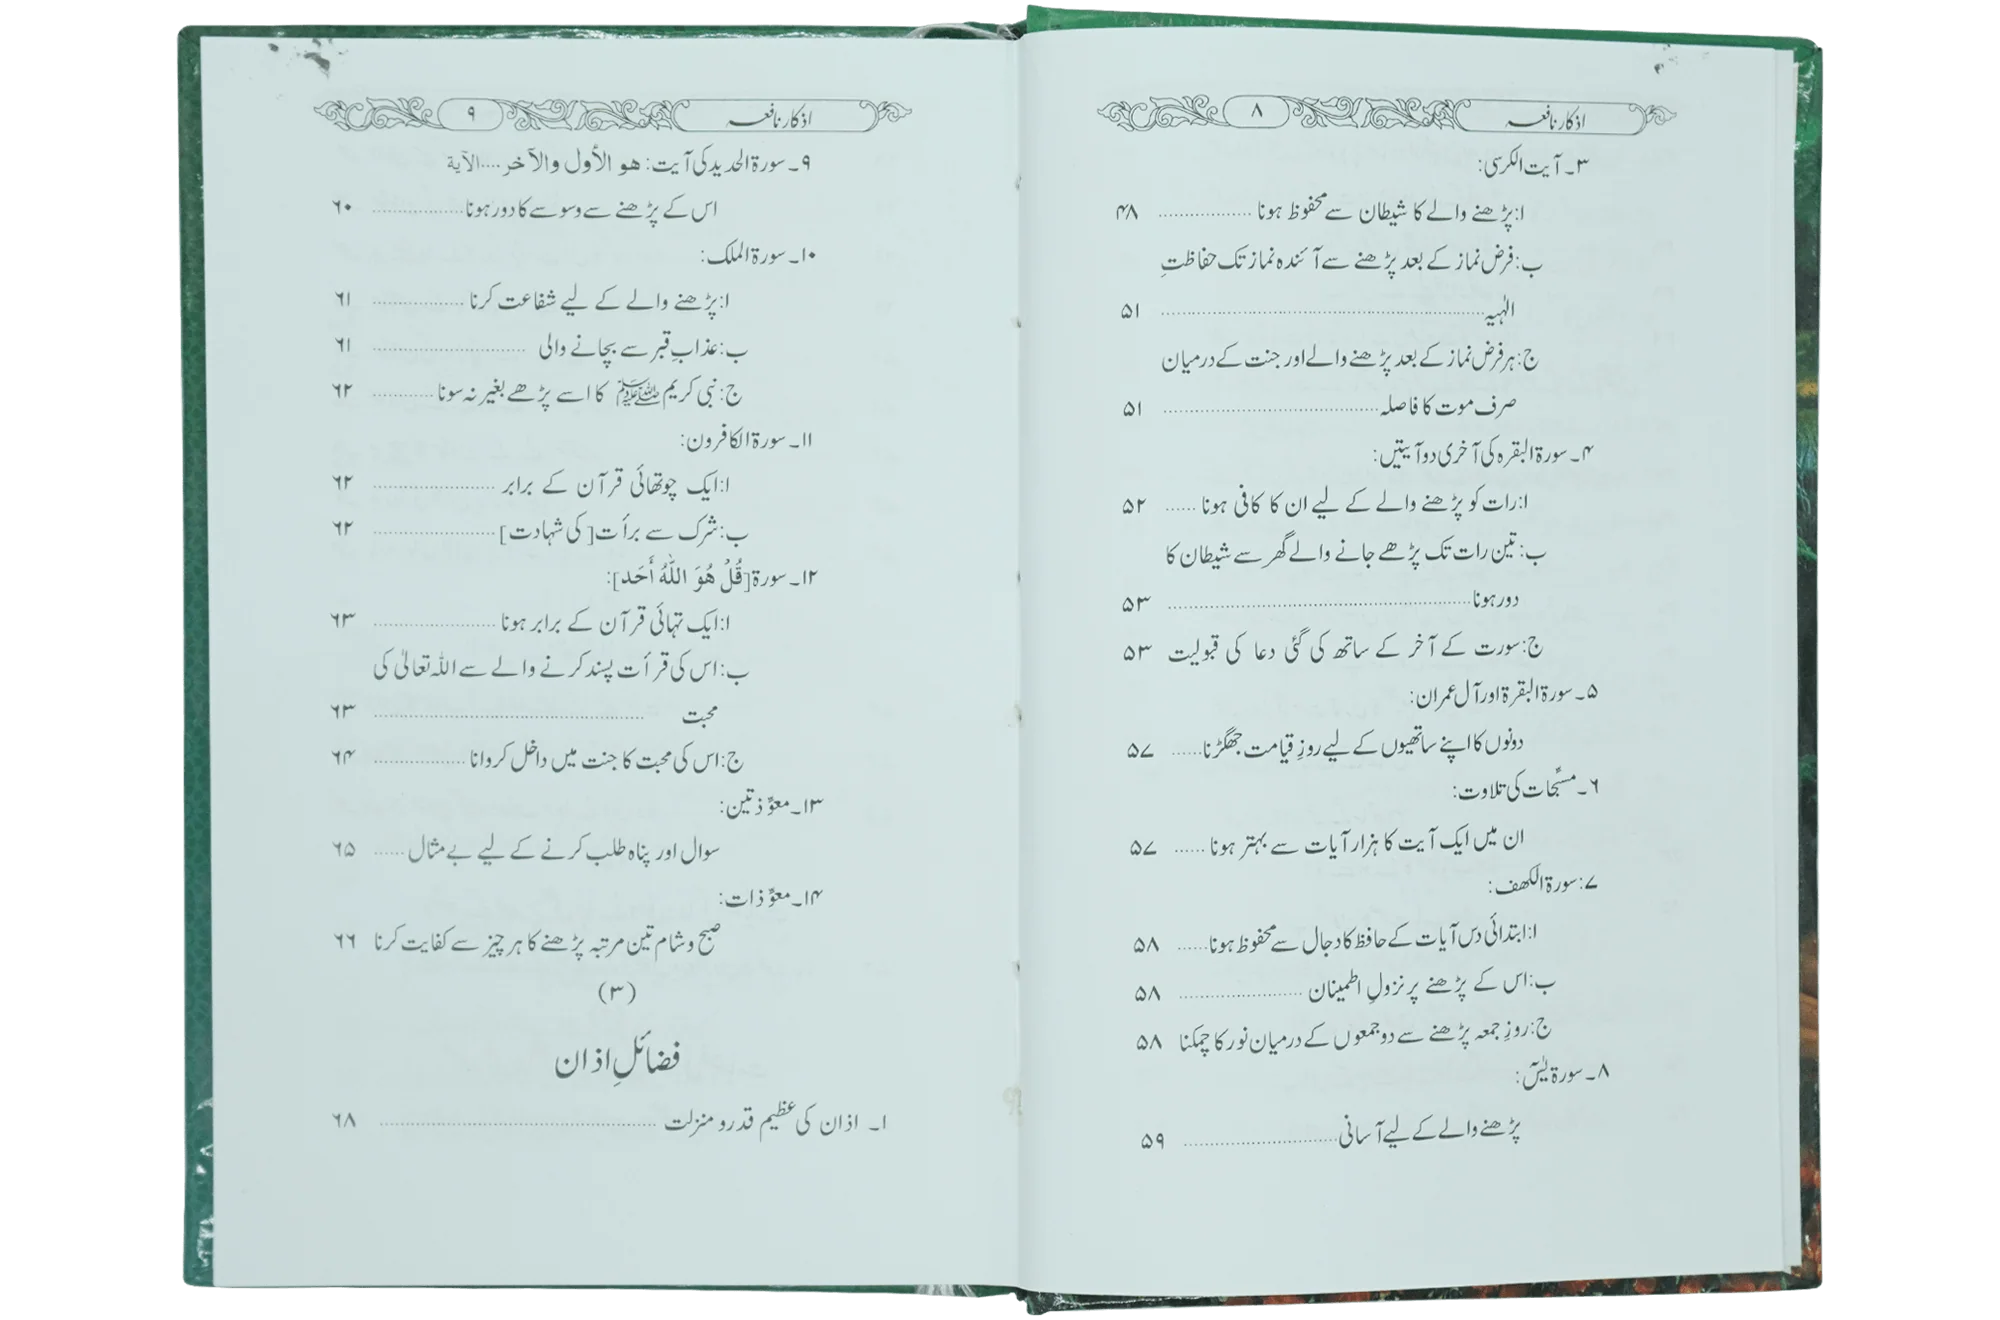 اذکار نافعہ ۸
۳۔ آیت الکرسی:
ا: پڑھنے والے کا شیطان سے محفوظ ہونا .................. ۴۸
ب: فرض نماز کے بعد پڑھنے سے آئندہ نماز تک حفاظتِ
الٰہیہ .................. ۵۱
ج: ہر فرض نماز کے بعد پڑھنے والے اور جنت کے درمیان
صرف موت کا فاصلہ .................. ۵۱
۴۔ سورۃ البقرہ کی آخری دو آیتیں:
ا: رات کو پڑھنے والے کے لیے ان کا کافی ہونا ...... ۵۲
ب: تین رات تک پڑھے جانے والے گھر سے شیطان کا
دور ہونا .................. ۵۳
ج: سورت کے آخر کے ساتھ کی گئی دعا کی قبولیت ۵۳
۵۔ سورۃ البقرۃ اور آل عمران:
دونوں کا اپنے ساتھیوں کے لیے روزِ قیامت جھگڑنا ...... ۵۷
۶۔ مسبِّحات کی تلاوت:
ان میں ایک آیت کا ہزار آیات سے بہتر ہونا ...... ۵۷
۷: سورۃ الکھف:
ا: ابتدائی دس آیات کے حافظ کا دجال سے محفوظ ہونا ...... ۵۸
ب: اس کے پڑھنے پر نزولِ اطمینان .................. ۵۸
ج: روزِ جمعہ پڑھنے سے دو جمعوں کے درمیان نور کا چمکنا ۵۸
۸۔ سورۃ یٰسٓ:
پڑھنے والے کے لیے آسانی .................. ۵۹
اذکار نافعہ ۹
۹۔ سورۃ الحدید کی آیت: هو الأول والآخر ....الآية
اس کے پڑھنے سے وسوسے کا دور ہونا .................. ۶۰
۱۰۔ سورۃ الملک:
ا: پڑھنے والے کے لیے شفاعت کرنا .................. ۶۱
ب: عذابِ قبر سے بچانے والی .................. ۶۱
ج: نبی کریم ﷺ کا اسے پڑھے بغیر نہ سونا ............ ۶۲
۱۱۔ سورۃ الکافرون:
ا: ایک چوتھائی قرآن کے برابر .................. ۶۲
ب: شرک سے برأت [کی شہادت] .................. ۶۲
۱۲۔ سورۃ [قُلْ هُوَ اللّٰهُ أَحَد]:
ا: ایک تہائی قرآن کے برابر ہونا .................. ۶۳
ب: اس کی قرأت پسند کرنے والے سے اللہ تعالیٰ کی
محبت .................. ۶۳
ج: اس کی محبت کا جنت میں داخل کروانا .................. ۶۴
۱۳۔ معوّذتین:
سوال اور پناہ طلب کرنے کے لیے بے مثال ...... ۶۵
۱۴۔ معوّذات:
صبح و شام تین مرتبہ پڑھنے کا ہر چیز سے کفایت کرنا ۶۶
(۳)
فضائلِ اذان
۱۔ اذان کی عظیم قدر و منزلت .................. ۶۸